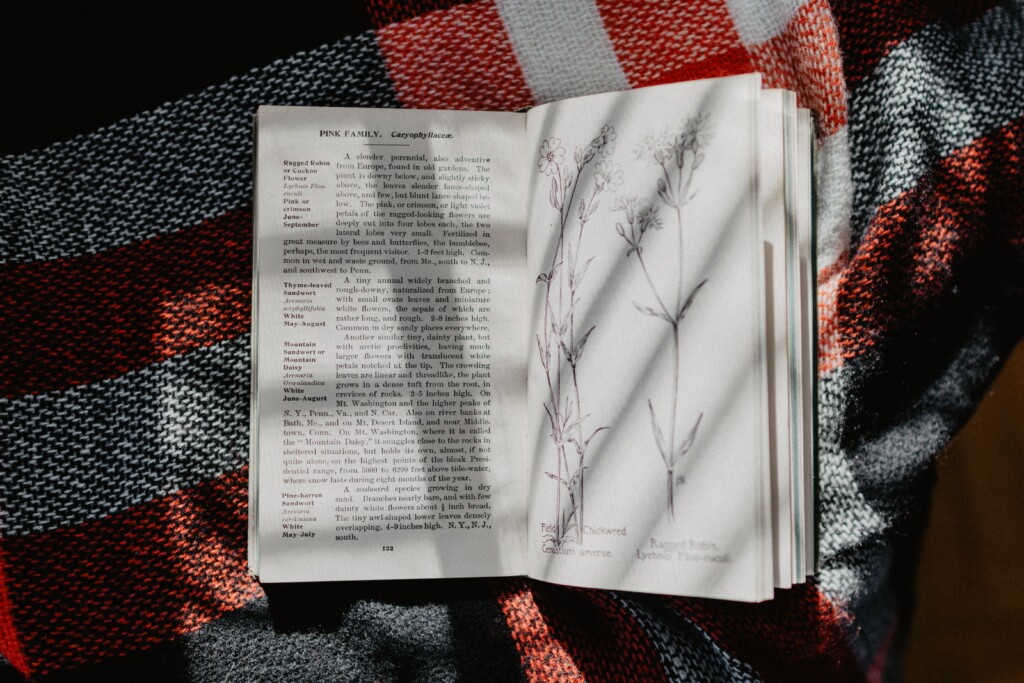 PINK FAMILY. Caryophyllaceæ.
Ragged Robin
or Cuckoo
Flower
Lychnis Flos-
cuculi
Pink or
crimson
June-
September
A slender perennial, also adventive
from Europe, found in old gardens. The
plant is downy below, and slightly sticky
above, the leaves slender lance-shaped
above, and few, but blunt lance shaped be-
low. The pink, or crimson, or light violet
petals of the ragged-looking flowers are
deeply cut into four lobes each, the two
lateral lobes very small. Fertilized in
great measure by bees and butterflies, the bumblebee,
perhaps, the most frequent visitor. 1-2 feet high. Com-
mon in wet and waste ground, from Me., south to N. J.,
and southwest to Penn.
Thyme-leaved
Sandwort
Arenaria
serphyllifolia
White
May-August
A tiny annual widely branched and
rough-downy, naturalized from Europe;
with small ovate leaves and miniature
white flowers, the sepals of which are
rather long, and rough. 2-8 inches high.
Common in dry sandy places everywhere.
Mountain
Sandwort or
Mountain
Daisy
Arenaria
Grœnlandica
White
June-August
Another similar tiny, dainty plant, but
with arctic proclivities, having much
larger flowers with translucent white
petals notched at the tip. The crowding
leaves are linear and threadlike, the plant
grows in a dense tuft from the root, in
crevices of rocks. 2-5 inches high. On
Mt. Washington and the higher peaks of
N. Y., Penn., Va., and N. Car. Also on river banks at
Bath, Me., and on Mt. Desert Island, and near Middle-
town, Conn. On Mt. Washington, where it is called
the "Mountain Daisy," it snuggles close to the rocks in
sheltered situations, but holds its own, almost, if not
quite alone, on the highest points of the bleak Presi-
dential range, from 5000 to 6200 feet above tide-water,
where snow lasts during eight months of the year.
Pine-barren
Sandwort
Arenaria
caroliniana
White
May-July
A seaboard species growing in dry
sand. Branches nearly bare, and with few
dainty white flowers about ½ inch broad.
The tiny awl-shaped lower leaves densely
overlapping. 4-9 inches high. N. Y., N. J.,
south.
122
Field Chickweed.
Cerastium arvense.
Ragged Robin.
Lychnis Flos-cuculi.